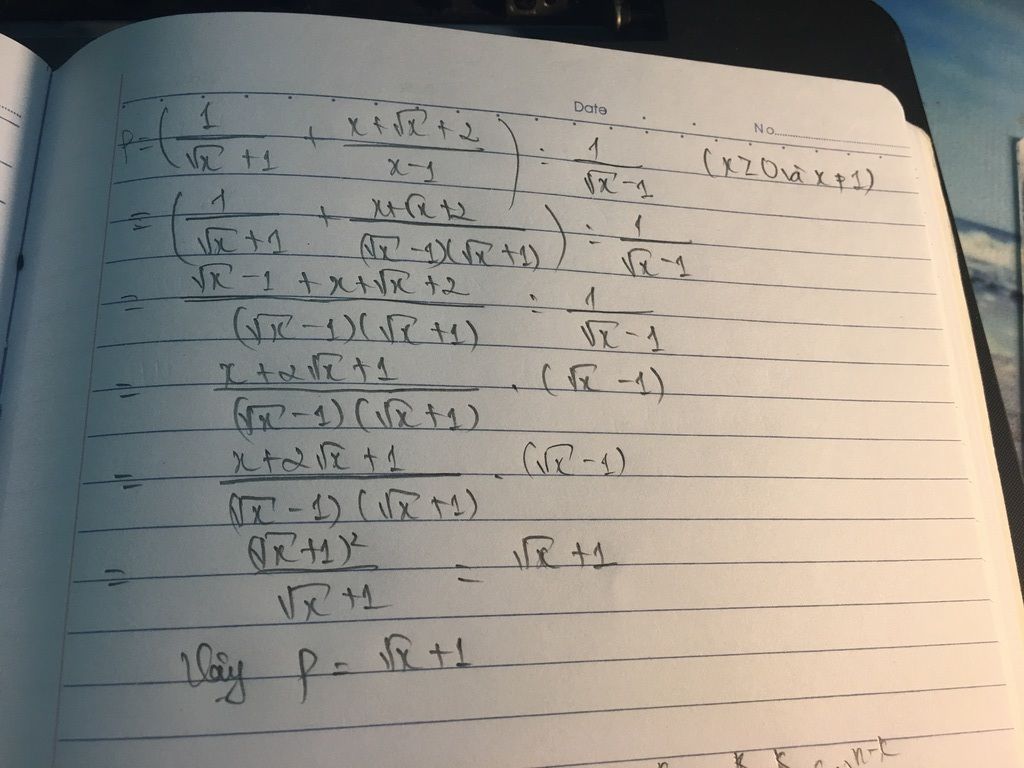 Date
No
P = ( 1/(√x + 1) + (x + √x + 2)/(x - 1) ) : 1/(√x - 1) (x ≥ 0 và x ≠ 1)
= ( 1/(√x + 1) + (x + √x + 2)/((√x - 1)(√x + 1)) ) : 1/(√x - 1)
= (√x - 1 + x + √x + 2)/((√x - 1)(√x + 1)) : 1/(√x - 1)
= (x + 2√x + 1)/((√x - 1)(√x + 1)) . (√x - 1)
= (x + 2√x + 1)/((√x - 1)(√x + 1)) . (√x - 1)
= (√x + 1)²/(√x + 1) = √x + 1
Vậy P = √x + 1